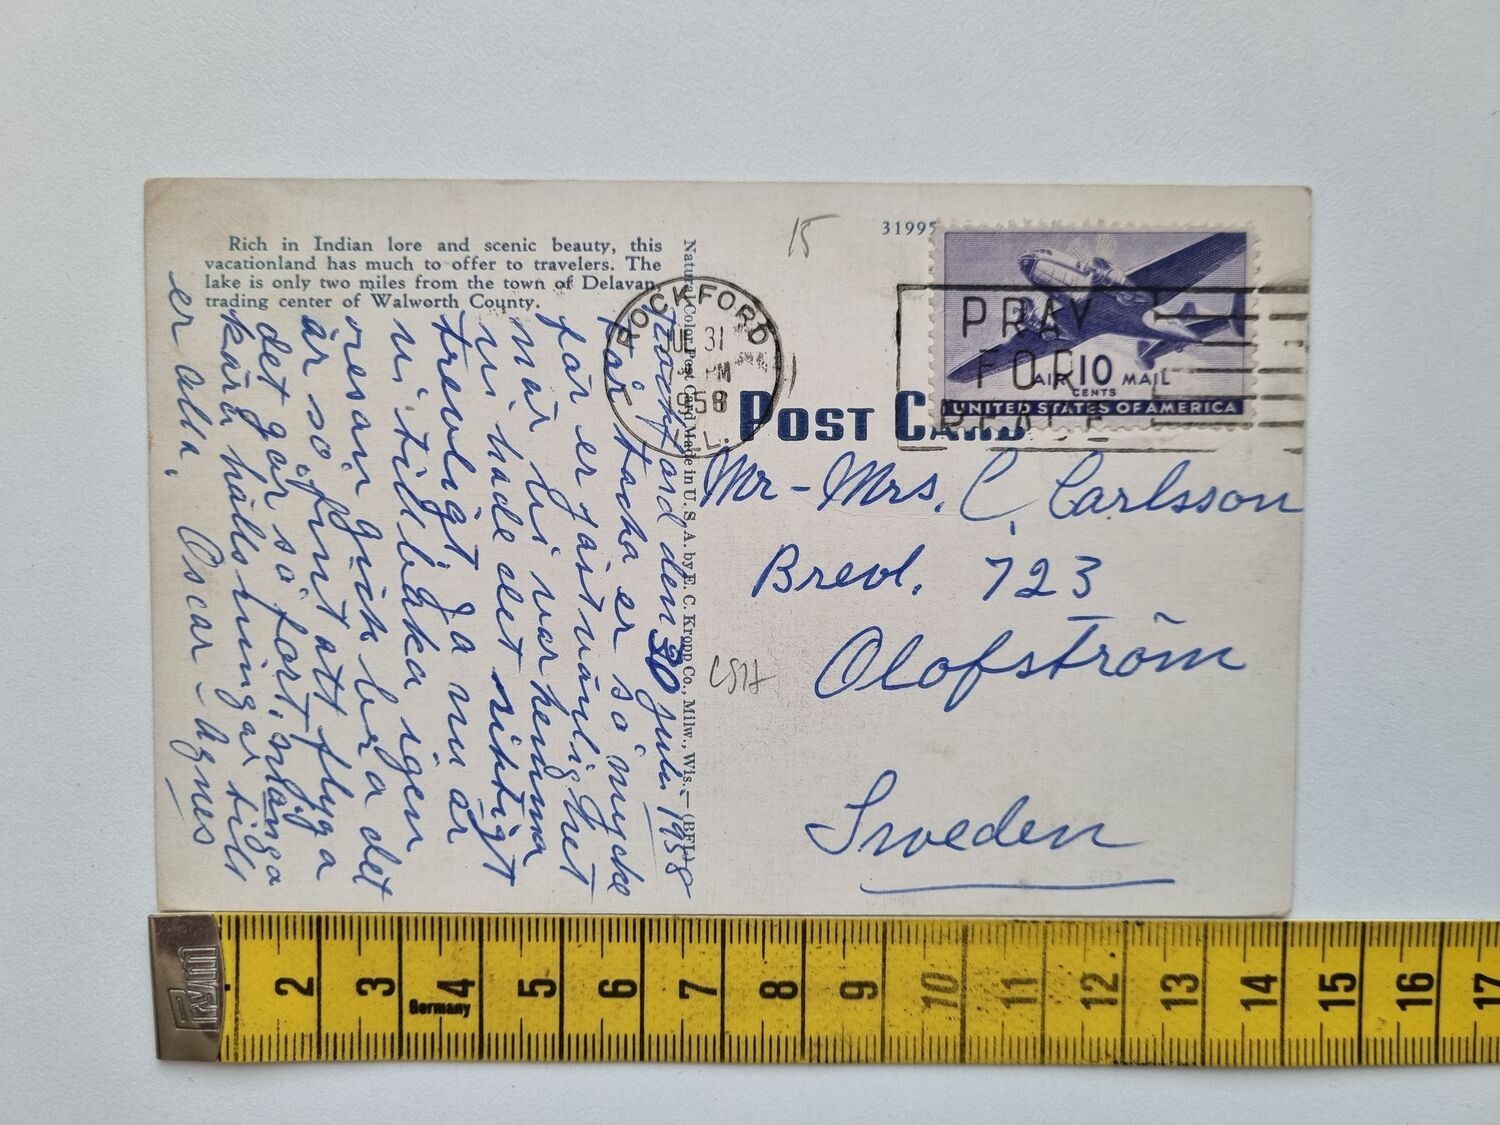 Rich in Indian lore and scenic beauty, this
vacationland has much to offer to travelers. The
lake is only two miles from the town of Delavan,
trading center of Walworth County.
Rockford den 30 juli 1958
Här tacka er så mycke
för er gästvänlighet
när vi var hemma
vi hade det riktigt
trevligt ja nu är
vi tillbaka igen
resan gick bra det
är så fint att flyga
det går så fort, många
kära hälsningar till
er alla. Oscar - Agnes
Natural Color Post Card Made in U. S. A. by E. C. Kropp Co., Milw., Wis.
15
31995
ROCKFORD
JUL 31
PM
1958
ILL.
PRAY
FOR
PEACE
AIR 10 MAIL
CENTS
UNITED STATES OF AMERICA
POST CARD
Mr - Mrs. C. Carlsson
Brevl. 723
Olofström
Sweden
Prym
Germany
2 3 4 5 6 7 8 9 10 11 12 13 14 15 16 17